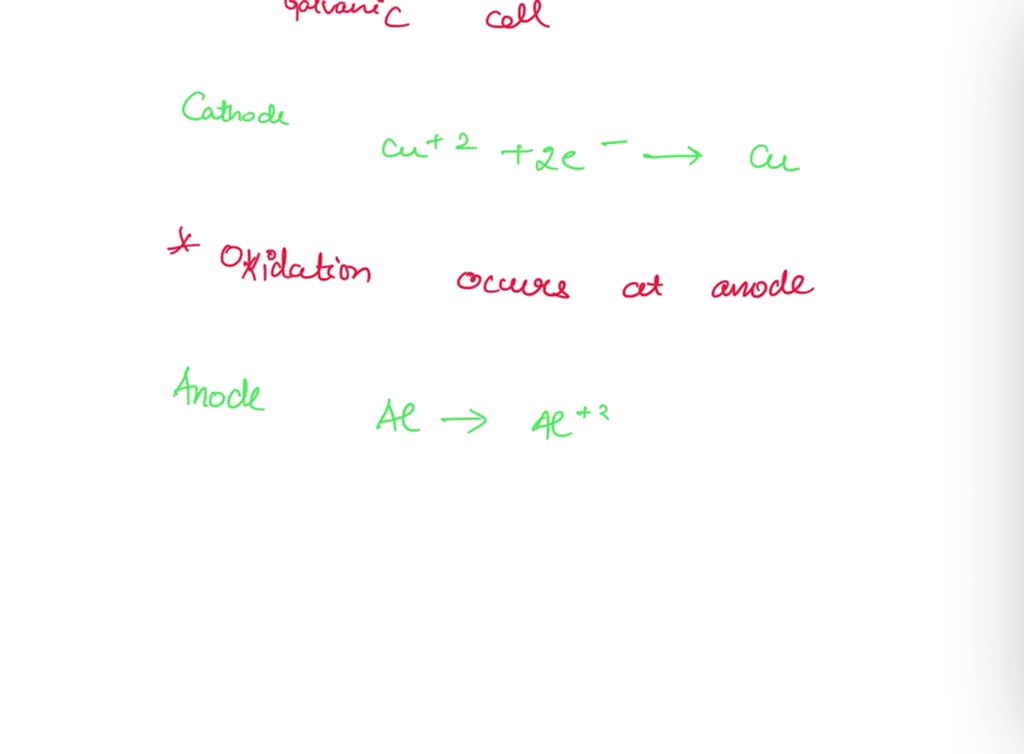 Galvanic cell
Cathode
Cu+2 + 2e- → Cu
* Oxidation occurs at anode
Anode
Al → Al+3